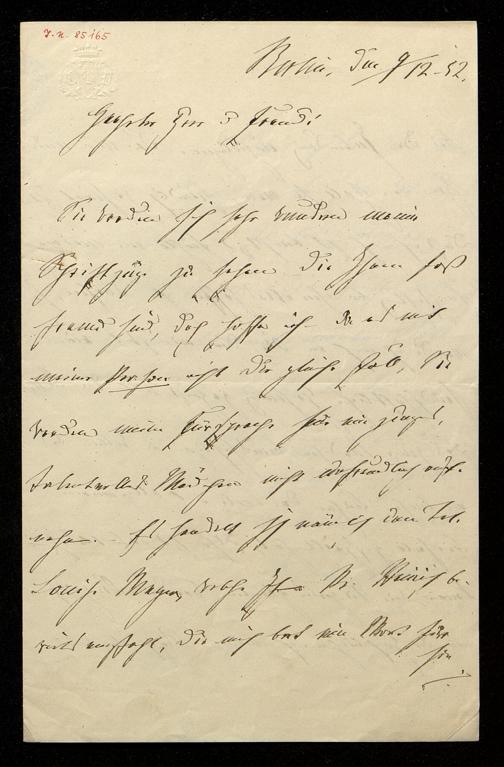 J. N. 85165
Berlin, den 9/12-52.
Geehrter Herr u Freund!
Sie werden sich sehr wundern meine
Schriftzüge zu sehen die Ihnen fast
fremd sind, doch hoffe ich da es mit
meiner Person nicht der gleiche Fall, Sie
werden meine Fürsprache für ein junges,
talentvolles Mädchen nicht unfreundlich auf-
nehmen. Es handelt sich nämlich um Frl.
Louise Meyer, welche Ihnen Dr. be-
reits empfahl, die mich bat ein Wort für
sie